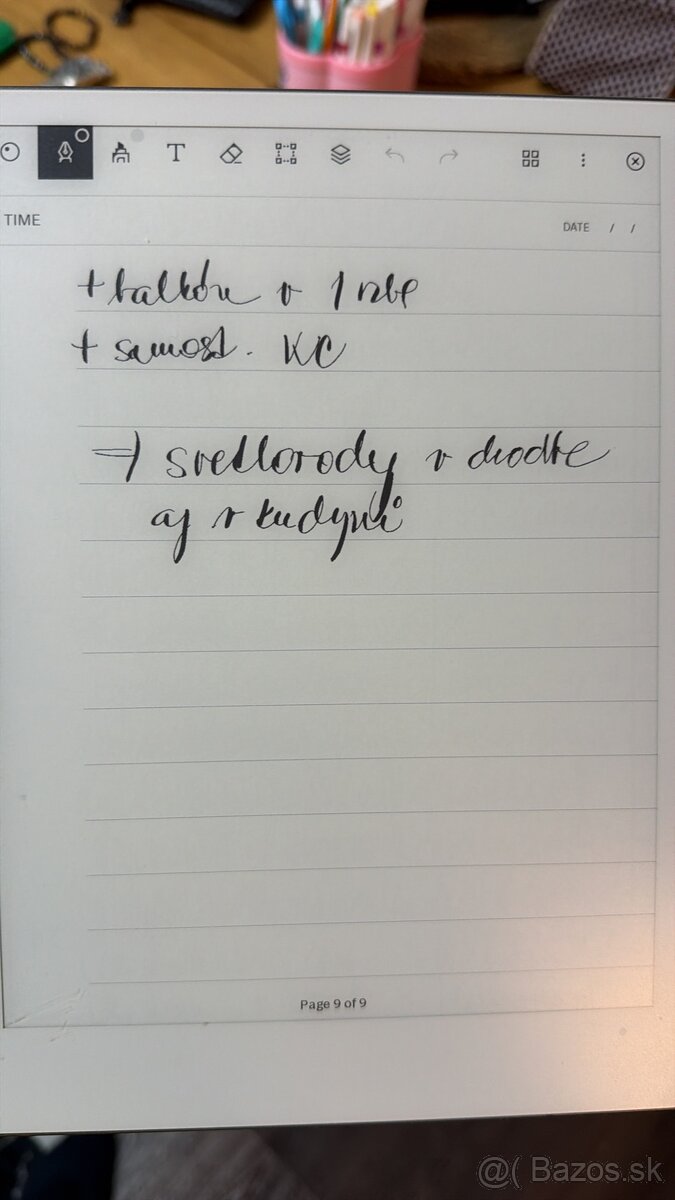 T
TIME
DATE / /
+ balkón v 1 izbe
+ samost. KC
=> svetlovody v chodbe
aj v kuchyni
Page 9 of 9
@( Bazos.sk